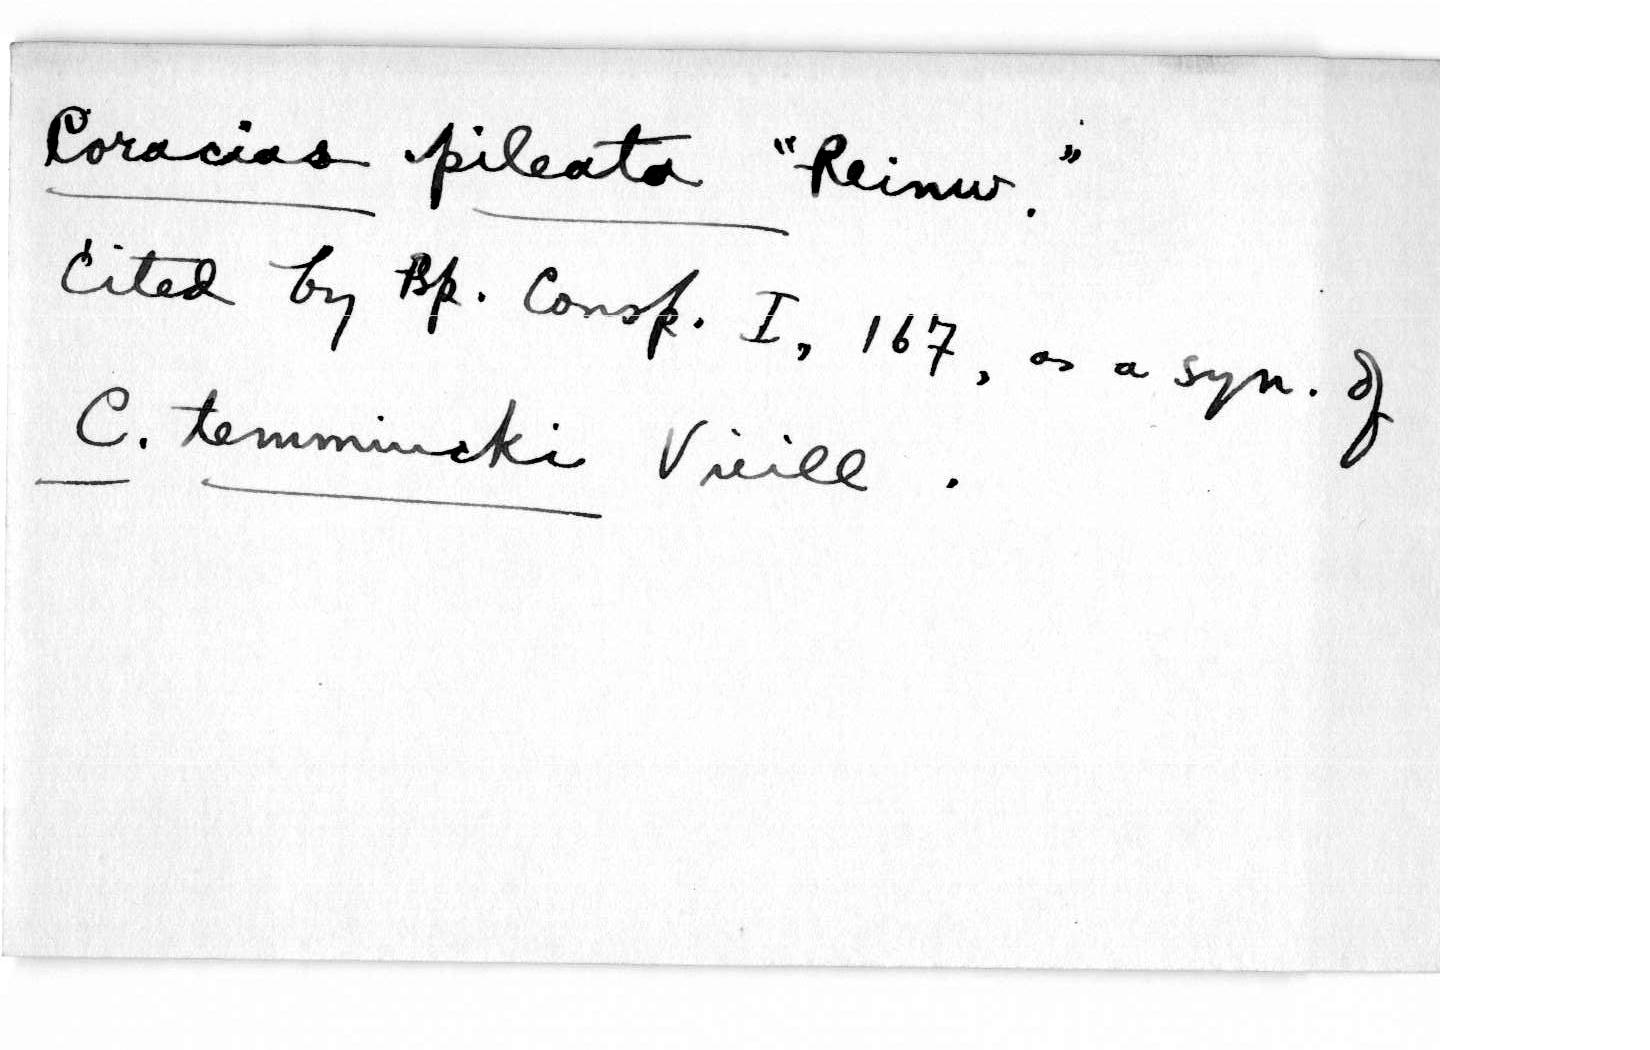 Coracias pileata "Reinw."
Cited by Bp. Consp. I, 167, as a syn. of
C. temmincki Vieill.